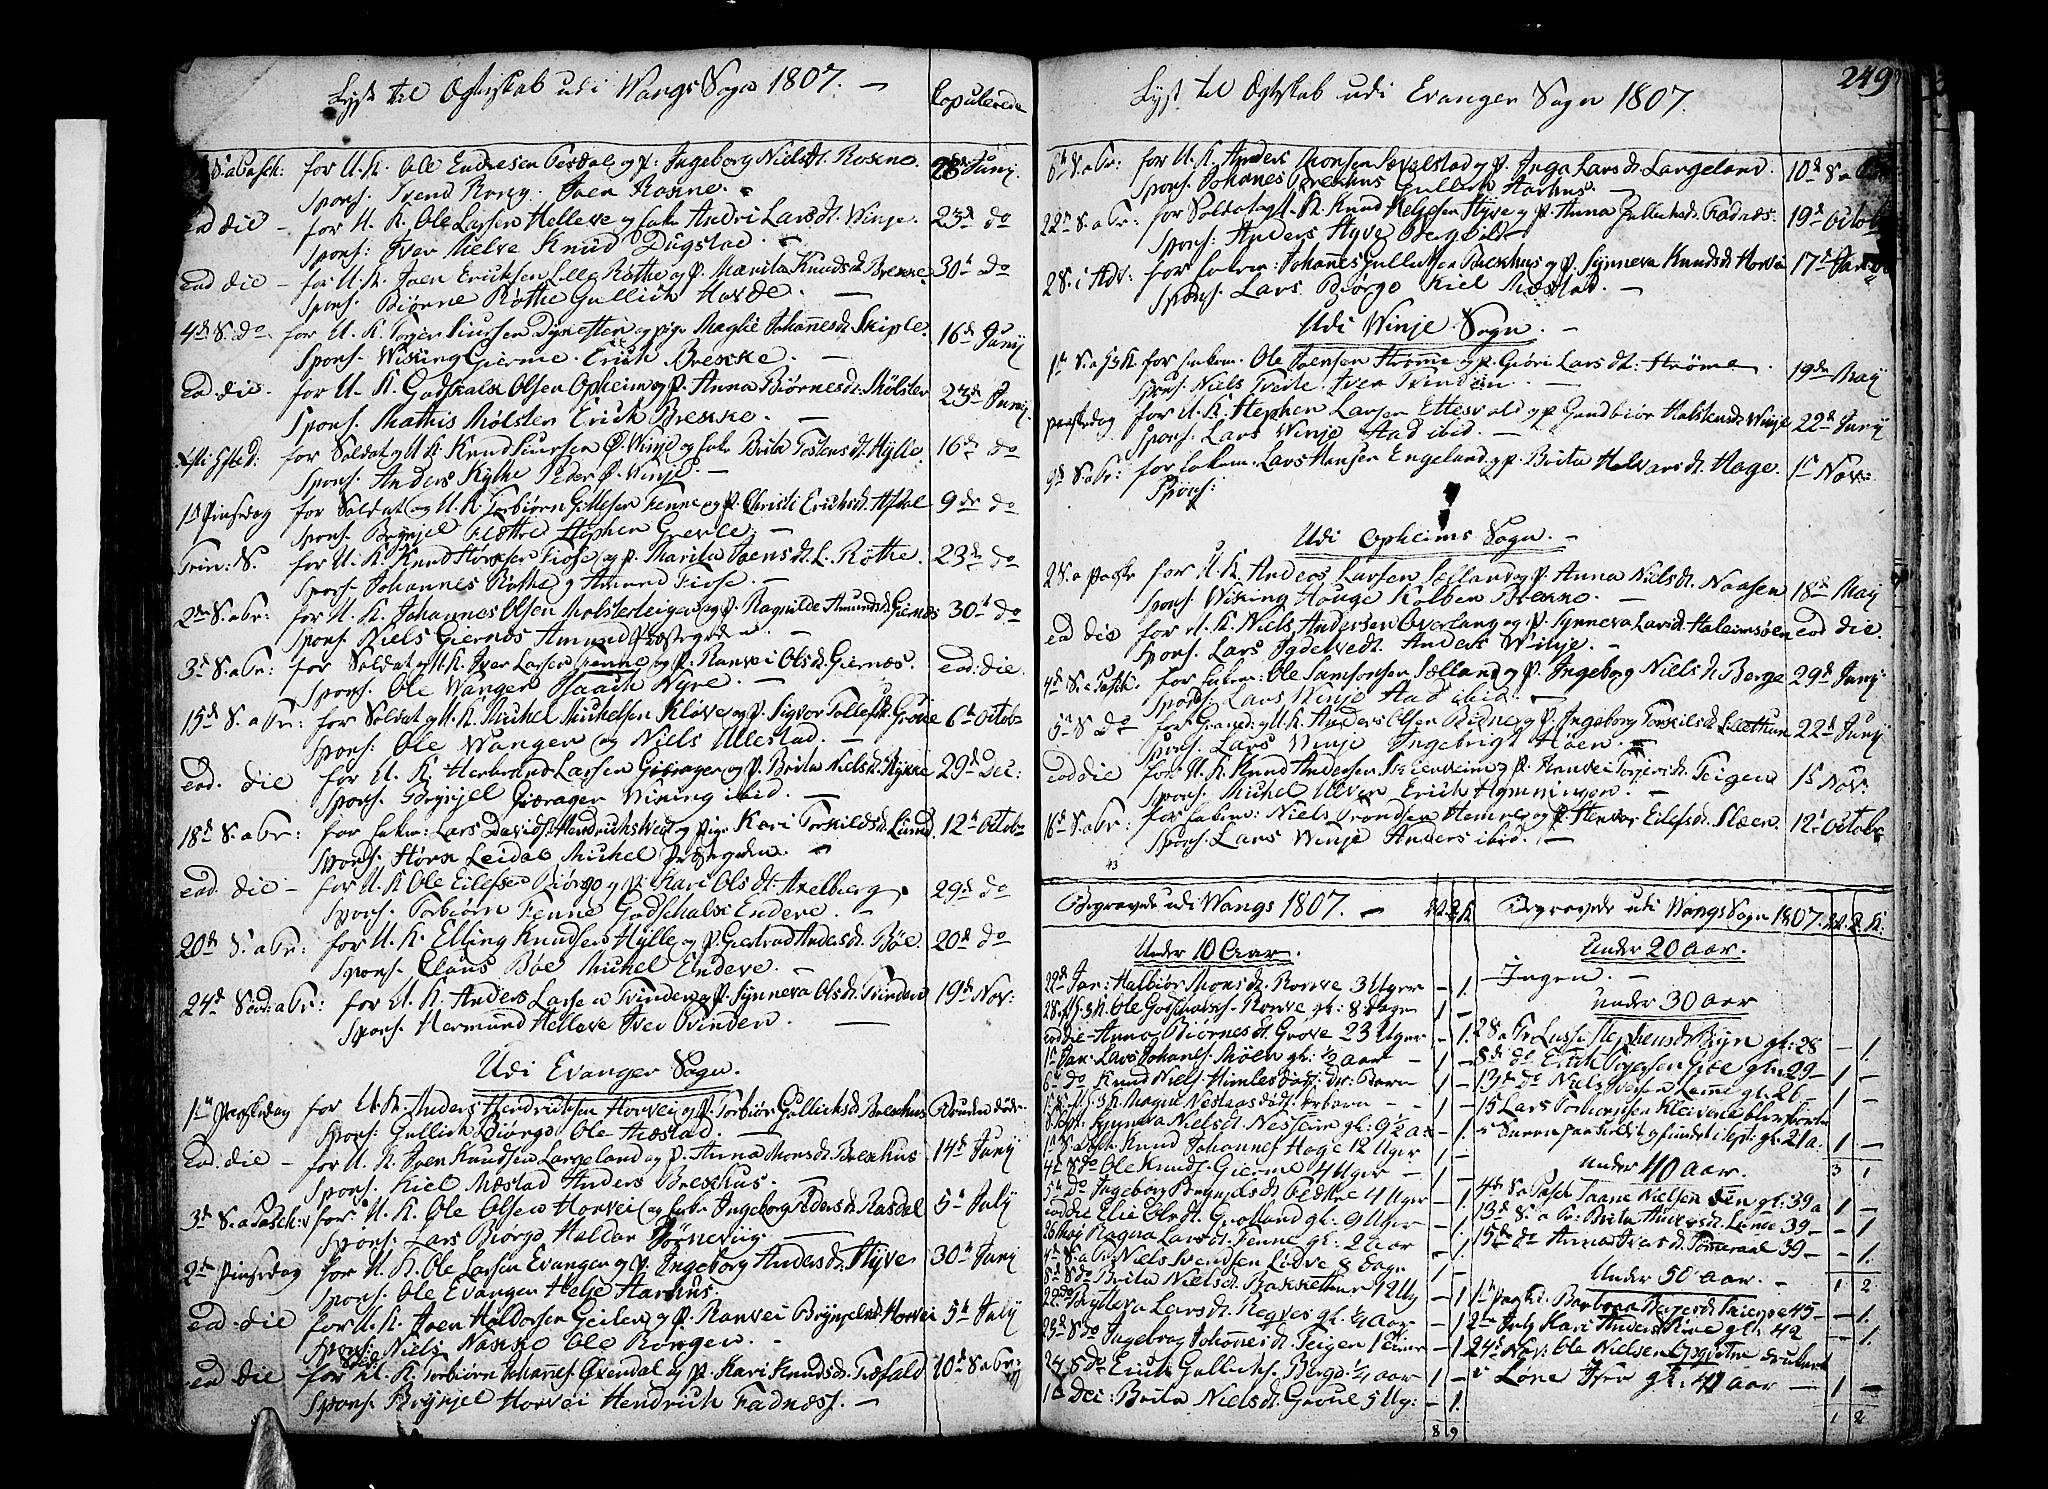 Lyst til Egteskab udi Wangs Sogn 1807. —
Copulerede
S. a Pasch: for U. K. Ole Endresen Tesdal og P. Ingeborg Nielsdt. Rokne. 28de Junj
Spons. Svend Rong. Iver Rokne.
ead die — for U. K. Ole Larsen Helleve og Enke Andri Larsdt. Winje. 23d do
Spons: Iver Melve Knud Dugstad.
ead die — for U. K. Joen Eriksen Lille Røthe og P. Marita Knudsdt. Brekke. 30t do
Spons. Biørne Røthe Gullich Harde. —
4de S. do for U. K. Torger Siursen Dyresten og pige Magli Johannesdt. Skiple. 16de Junj
Spons. Wiking Gierme. Erich Brekke. —
ead. die. for U. K. Godskalk Olsen Opheim og P. Anna Biørnesdt. Mølster 23de Junj.
Spons. Mathis Mølster Erich Brekke. —
for Soldat og U. K. Knud Siursen Ø. Winje og Enke Brita Tostensdt. Hylle. 16de do
Spons. Anders Kythe Peder Ø. Winje. —
1ste Pinsedag for Soldat og U. K. Torbiørn Gullesen Fenne og P. Christi Erichsdt. Afdal 9de do
Spons. Brynjel Fløthe Stephen Grevle. —
Trin: S. for U. K. Knud Hovser Tiose og P. Marita Joensdt. L. Røthe. 23de do
Spons. Johannes Røthe og Amund Tiose. —
2den S. a Tr: for U. K. Johannes Olsen Mølsterteigen og P. Ragnilde Amundsdt. Giernes 30t do
Spons. Niels Giernes Amund Præstegden. —
3d S. a Tr: for Soldat og U. K. Iver Larsen Fenne og P. Ranvei Olsdt. Giernæs. ead: die.
Spons. Ole Wanger Isaach Nyre. —
15d S. a Tr: for Soldat og U. K. Michel Michelsen Kløve og P. Sigvor Tollefsdt. Groue 6te Octob:
Spons: Ole Wanger og Niels Ullestad. —
ead. die for U. K. Herbrand Larsen Gierager og P. Brita Nielsdt. Rykke 29de Dec:
Spons. Brynjel Gierager Wiking ibid. —
18d S. a Tr: for Enkm: Lars Davids. Hendrichs Wed og pige Kari Torkildsdt. Lund. 12t Octob:
Spons. Leidal Michel Præstegden. —
ead. die — for U. K. Ole Eilefsen Biørgo og P. Kari Olsdt. Axelberg. 29de do
Spons. Torbiørn Fenne Godschalk Endeve. —
20de S. a Tr: for U. K. Elling Knudsen Hylle og P. Giertrud Andersdt. Bøe. 20de do
Spons. Claus Bøe Michel Endeve. —
24d Sønd: a Tr: for U. K. Anders Larsen Tvinden og P. Synneva Olsdt. Tvinden 19de Nov:
Spons. Hermund Helleve Iver Tvinden. —
Udi Evanger Sogn.
1ste Paaskedag for U. K. Anders Hendrichsen Horvei og P. Torbiør Gullichsdt. Brekhus Bruden døde.
Spons: Gullich Biørgo Ole Mæstad. —
ead: die — for U. K. Iver Knudsen Langeland og P. Anna Monsdt. Brekhus 14d Junj
Spons. Kiel Mæstad Anders Brekhus. —
3d S. a Pasch: for U. K. Ole Olsen Horvei og Enke Ingeborg Pedersdt. Rasdal 5t July
Spons. Lars Biørgo Haldor Børneviig. —
2d Pinsedag for U. K. Ole Larsen Evanger og P. Ingeborg Andersdt. Styve 30t Junj
Spons. Ole Evanger Helje Harhus.
ead. die for U. K. Iver Haldorsen Geilen og P. Ranvei Brynjelsdt. Horvei 5t July
Spons. Niels Nakke Ole Rongen. —
ead die for U. K. Torbiørn Johannes. Øxendal og P. Kari Knudsdt. Tøsfald 10de S. a Tr:
Spons. Brynjel Horvei Hendrich Fadnæs. —
249
Lyst til Egteskab udi Evanger Sogn 1807.
6te S. a Tr: for U. K. Anders Monsen Sævelstad og P. Inga Larsdt. Langeland. 10de S. a
Spons. Johanes Brekhus Gullich Harhus. —
22n S. a Tr: for Soldat og U. K. Knud Heljesen Styve og P. Anna Gullichsdt. Fadnæs. 19de Octob
Spons: Anders Styve
2 S. i Adv: for Enkem: Johannes Gullichsen Brekhus og P. Synneva Knudsdt. Horvei 17d Jan
Spons. Lars Biørgo Kiel Mæstad. —
Udi Winje Sogn. —
1ste for Enkem. Ole Joensen Strøme og P. Giøri Larsdt: Strøme. 19de May
Spons. Niels Tveite Iver Tvinden. —
Paaskedag for U. K. Stephen Larsen Ettesvold og P. Gundbiør Halstensdt. Winje 22de Junj
Spons. Lars Winje Aad ibid. —
9de S. a Tr: for Enkem. Lars Hansen Engeland og P. Brita Halvarsdt. Hage. 1ste Nov:
Spons:
Udi Opheims Sogn. —
2 S. a Paaske for U. K. Anders Larsen Sælland og P. Anna Nielsdt. Naasen 18de May
Spons. Wiking Houge Kolben Brekke. —
ea die for U. K. Niels Andersen Overland og P. Synneva Larsdt. Haleimsøen ead die.
Spons. Lars Ygdelvedt. Anders Winje. —
4de S. a Pasch. for Enkem: Ole Samsonsen Sælland og P. Ingeborg Nielsdt. Berge 29de Junj
Spons. Lars Winje Aad ibid. —
5te S do for Grenad: og U. K. Anders Olsen Bidne og P. Ingeborg Torkilsdt. Sleethun 22de Junj
Spons. Lars Winje Ingebrigt Høen. —
ead die for U. K. Knud Andersen og P. Ranvei Torgersdt. Teigen 1ste Nov:
Spons. Michel Ulven Erich Hemmingen. —
16de S. a Tr: for Enkem: Niels Trondsen Hemre og P. Eilefsdt. Sleen. 12t Octobr
Spons. Lars Winje Anders ibid. —
43
Begravede udi Wangs 1807. —
Under 10 Aar.
22de Jan: Halbiør Monsdt. Rokne 3 Uger — 1.
Ole Godschalksen Rokne gl: 8 Dage 1 —
ead die Anna Biørnesdt. Grove 23 Uger — 1.
Lars Johanes. Møen gl: 1/2 aar — 1 —
6te do Knud Niels. Himle død: dr: Barn 1 —
Magne Nestaas barn — 1 —
Synneva Nielsdt. Nesheim gl: 9 1/2 a: — 1.
Knud Johannes. Hage 12 Uger 1 —
4de S do Ole Knuds. Gierme 4 Uger — 1 —
5te do Ingeborg Brynjelsdt. Fløthe 4 Uger — 1.
ead die Elie Olsdt. Grotland gl: 9 Uger — 1
26 May Ragna Larsdt. Fenne gl: 2 aar — 1
Niels Svendsen Lødve 8 Dage 1 —
8de S do Brita Nielsdt. Bakkethun 12 Ug — 1
22 do Brytteva Larsdt. Rogves gl: 1/4 aar — 1
23de S do Ingeborg Johannesdt. Teigen 1 Time — 1.
24 S do Erich Gullichs. Bergo 1/4 aar 1 —
16 Dec: Brita Nielsdt. Groue 5 Ug: — 1.
8 9
Begravede udi Wangs Sogn 1807.
Under 20 Aar.
— Ingen. —
Under 30 Aar
2 S. a Tr Stephensdt. Bryn gl: 28 — 1.
8de do Erich gl: 29 — 1 —
13de do Niels Iversen Lemme gl: 26 — 1 —
15 Lars Torbiørnsen Kleivene
gl: 21 a. 1 —
Under 40 Aar. 3 1
4de S. a Pasch Nielsen gl: 39 a 1 —
13de S. a Tr: Brita Andersdt. Lunde 39 — 1
15de do Anna Iversdt. 39 — 1.
Under 50 Aar. — 1 2
1ste Paaskd: Barbara 45 — 1.
July Kari Anders gl: 42 — 1.
24de Nov: Ole Nielsen druknet
i Løne Elv gl: 41 aar — 1 —
1 2